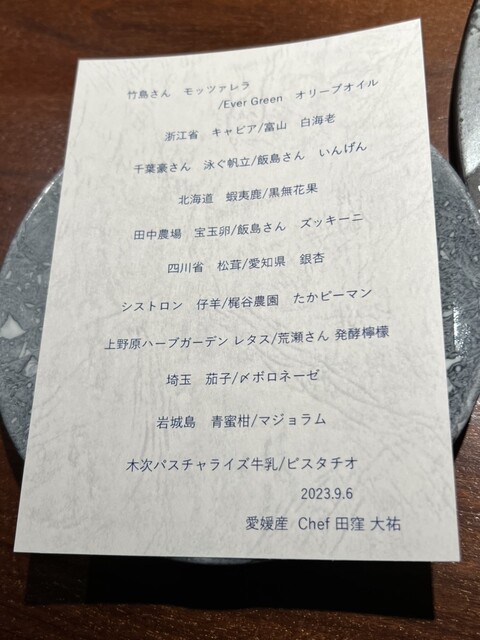 竹島さん　モッツァレラ
/Ever Green　オリーブオイル
浙江省　キャビア/富山　白海老
千葉豪さん　泳ぐ帆立/飯島さん　いんげん
北海道　蝦夷鹿/黒無花果
田中農場　宝玉卵/飯島さん　ズッキーニ
四川省　松茸/愛知県　銀杏
シストロン　仔羊/梶谷農園　たかピーマン
上野原ハーブガーデン レタス/荒瀬さん 発酵檸檬
埼玉　茄子/〆ボロネーゼ
岩城島　青蜜柑/マジョラム
木次パスチャライズ牛乳/ピスタチオ
2023.9.6
愛媛産 Chef 田窪 大祐